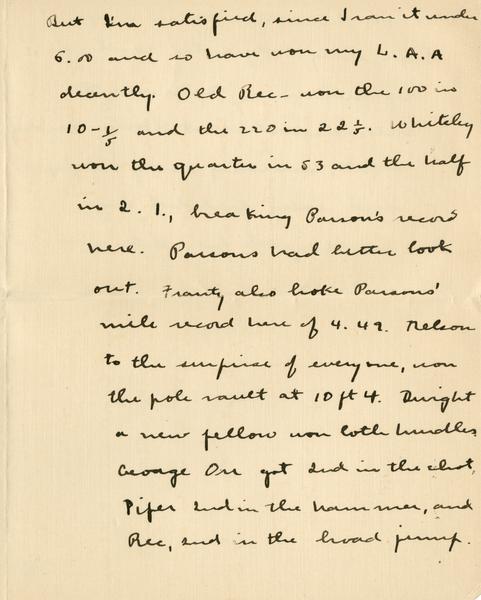 But I'm satisfied, since I ran it under
6.00 and so have won my L.A.A
decently. Old Rec- won the 100 in
10-1/5 and the 220 in 22 1/5. Whiteley
won the quarter in 53 and the half
in 2.1., breaking Parson's record
here. Parsons had better look
out. Frantz also broke Parsons'
mile record here of 4.49. Nelson
to the surprise of everyone, won
the pole vault at 10 ft 4. Dwight
a new fellow won both hurdles
George Orr got 2nd in the shot,
Pifer 2nd in the hammer, and
Rec, 2nd in the broad jump.